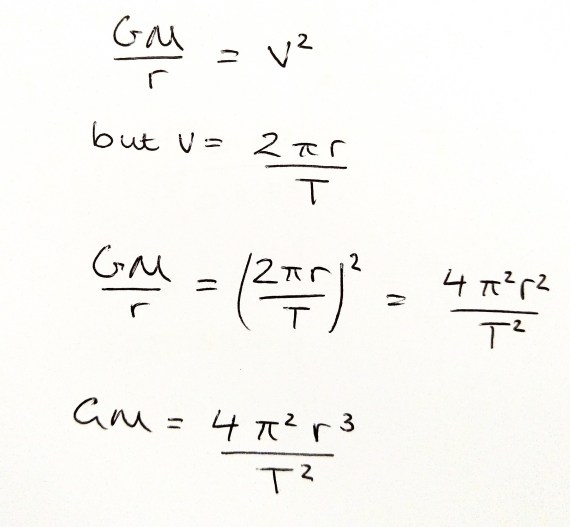 GM/r = v²
but v = 2πr/T
GM/r = (2πr/T)² = 4π²r²/T²
GM = 4π²r³/T²